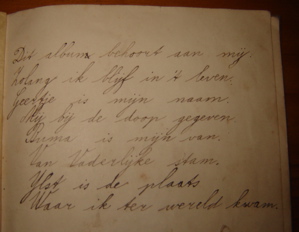 Dit album behoort aan mij.
Zolang ik blijf in 't leven.
Geertje is mijn naam.
Mij bij de doop gegeven
is mijn van.
Van Vaderlijke stam.
Ylst is de plaats
Waar ik ter wereld kwam.